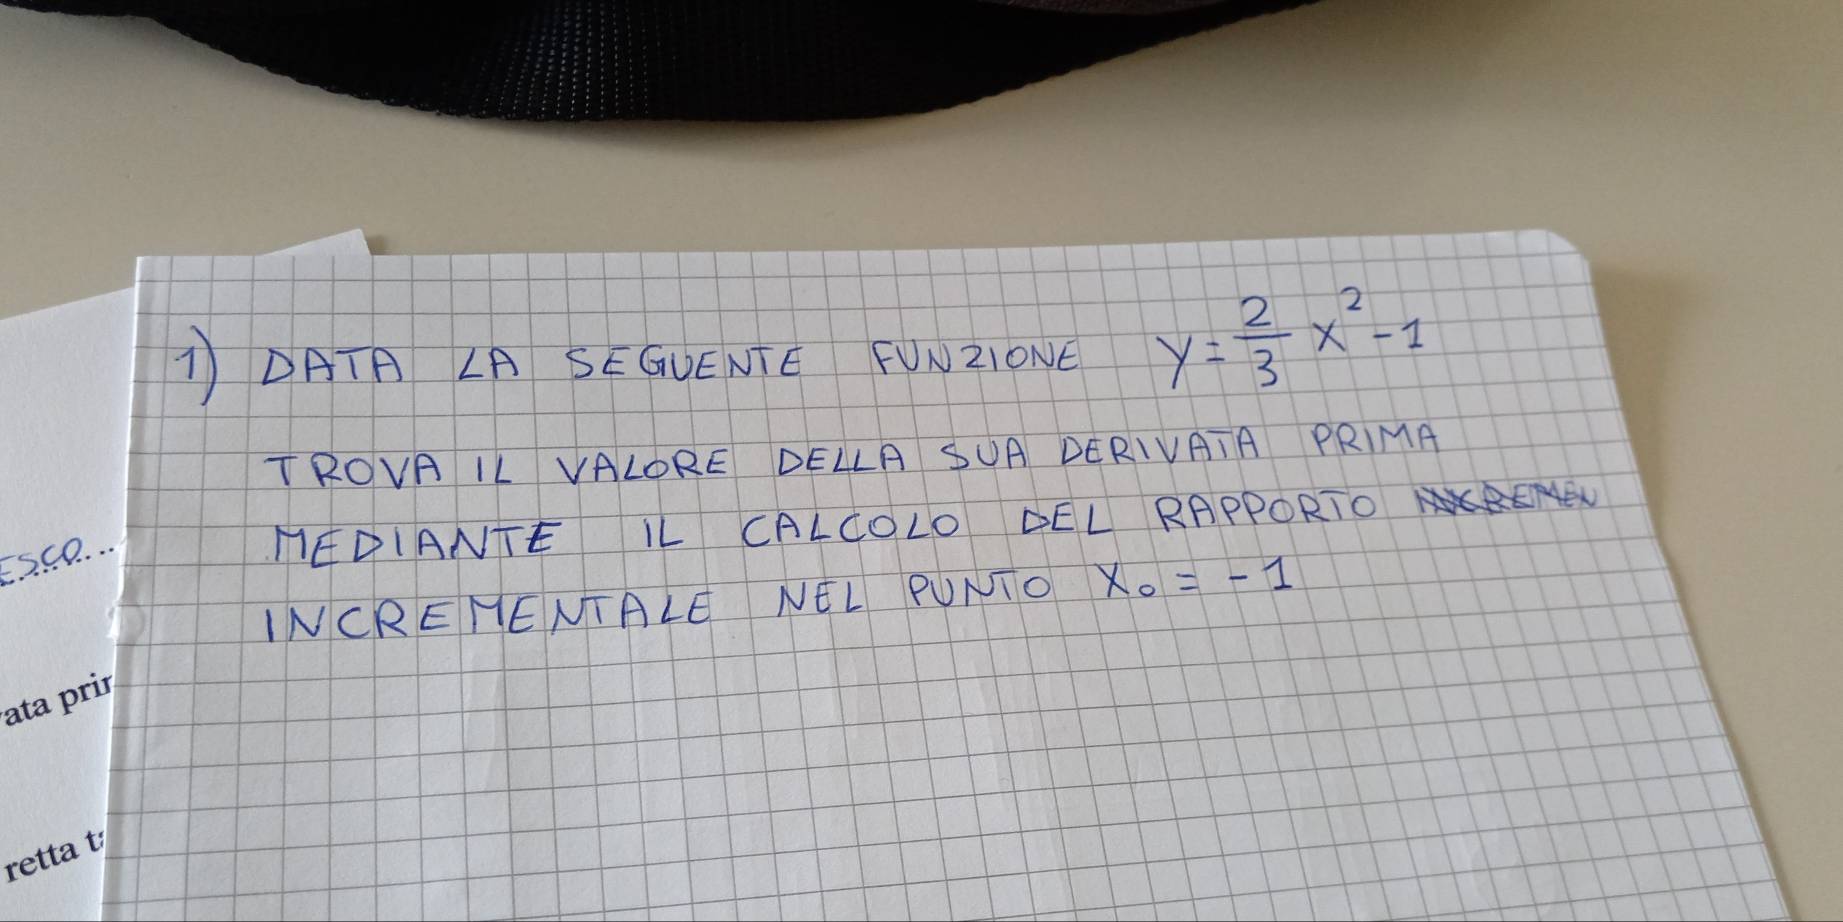 1) DATA LA SEGUENTE FUNZIONE y = 2/3 x² - 1
TROVA IL VALORE DELLA SUA DERIVATA PRIMA
MEDIANTE IL CALCOLO DEL RAPPORTO INCREMEN
INCREMENTALE NEL PUNTO X₀ = - 1
ESCO...
ata prir
retta t